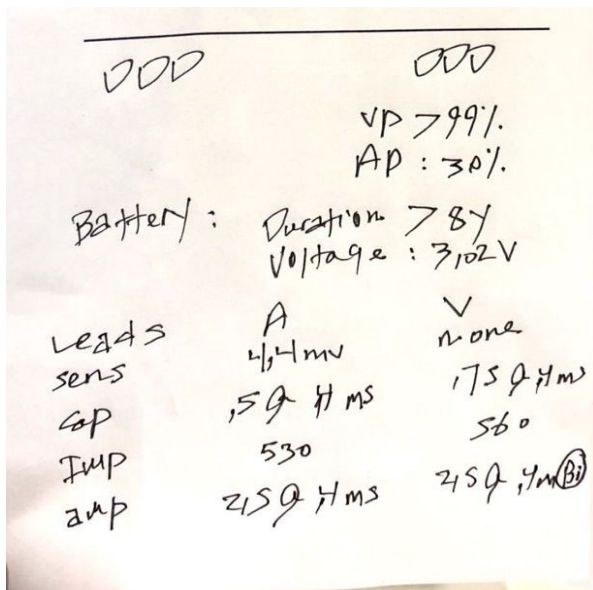 DDD DDD
VP >99%.
AP : 30%.
Battery : Duration >8y
Voltage : 3,02V
Leads A V
sens 4,4mv none
cap ,5@,4ms ,75@,4ms
Imp 530 560
amp 2,5@,4ms 2,5@,4m Bi